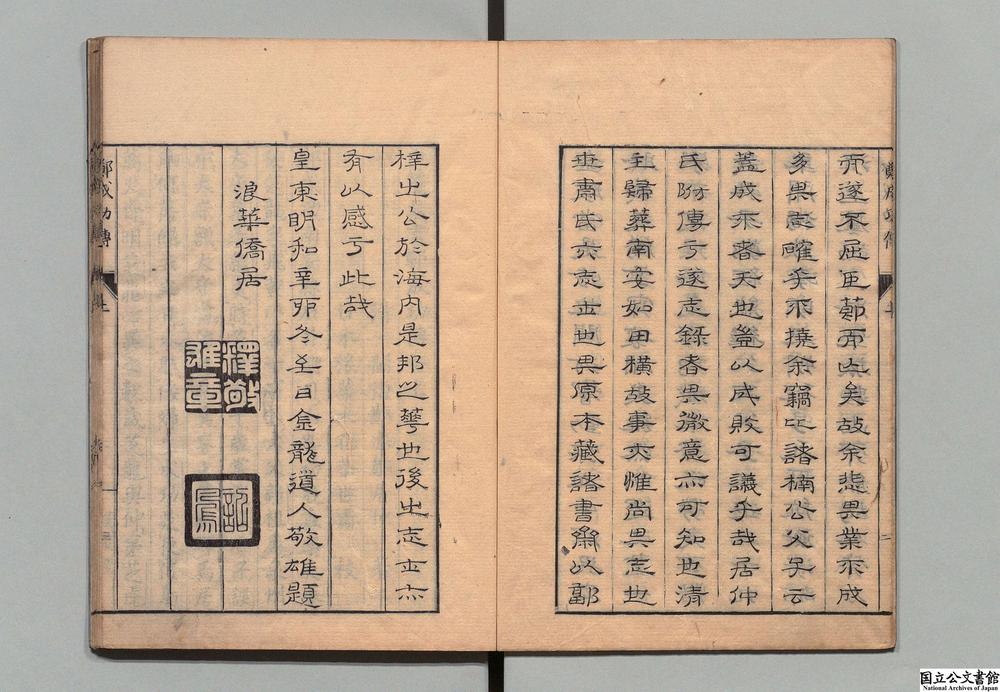 鄭成功傳
而遂不屈臣節而止矣故余悲其業不成
多其志確乎不撓余竊比諸楠公父子云
蓋成不者天也豈以成敗可議乎哉居仲
氏所傳乎遂志錄者其微意亦可知也清
主歸葬南安如田橫故事亦惟尚其志也
世肅氏亦志士也其原本藏諸書齋以
梓之公於海内是邦之華也後之志士亦
有以感于此哉
皇東明和辛卯冬至日金龍道人敬雄題
浪華僑居
釋敬雄章
鄭成功傳
国立公文書館
National Archives of Japan